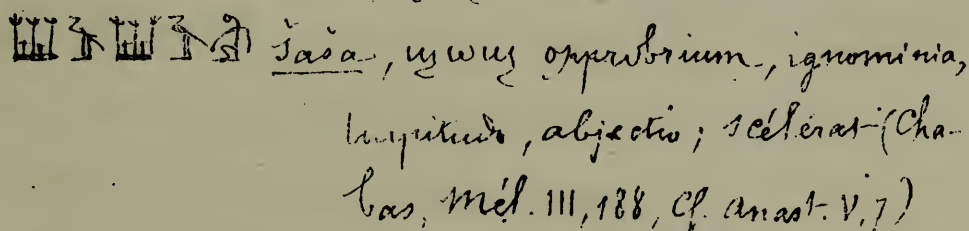 𓆷𓄿𓆷𓄿𓀁 šaša, ϣⲱϣ opprobrium, ignominia,
turpitudo, abjectio; scélérat (Cha-
bas, Mél. III, 188, Cf. Anast. V, 7)